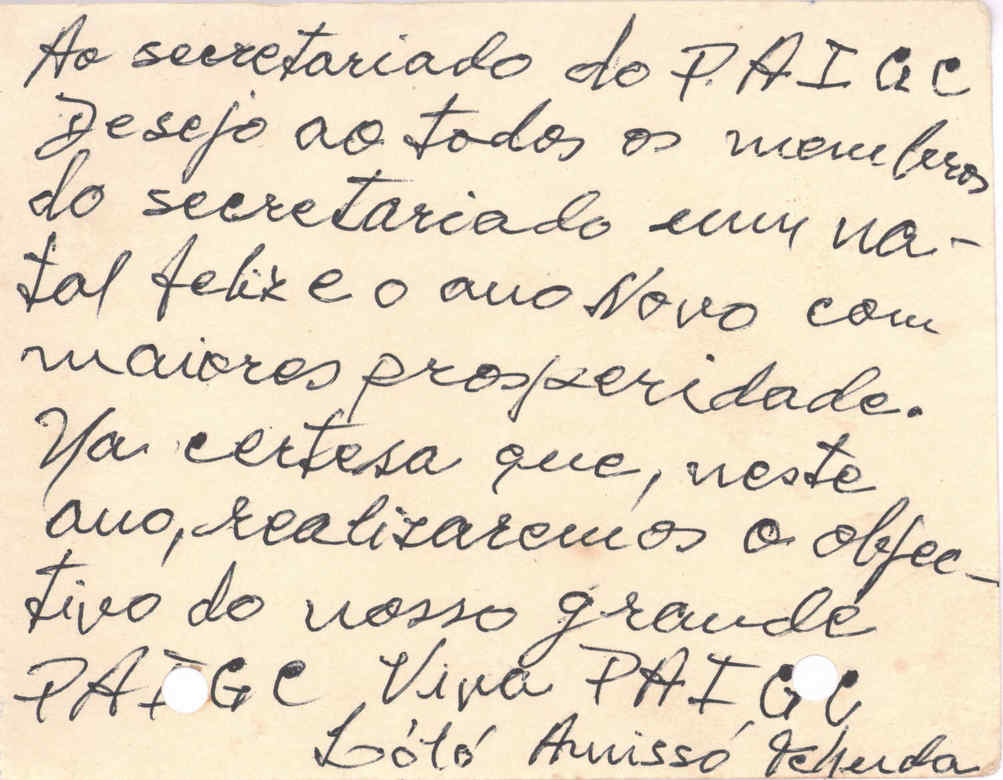 Ao secretariado do P.AIGC
Desejo ao todos os membros
do secretariado um na-
tal feliz e o ano Novo com
maiores prosperidade.
Na certesa que, neste
ano, realizaremos o objec-
tivo do nosso grande
PAIGC Viva PAIGC
Lótó Amissó Tchuda